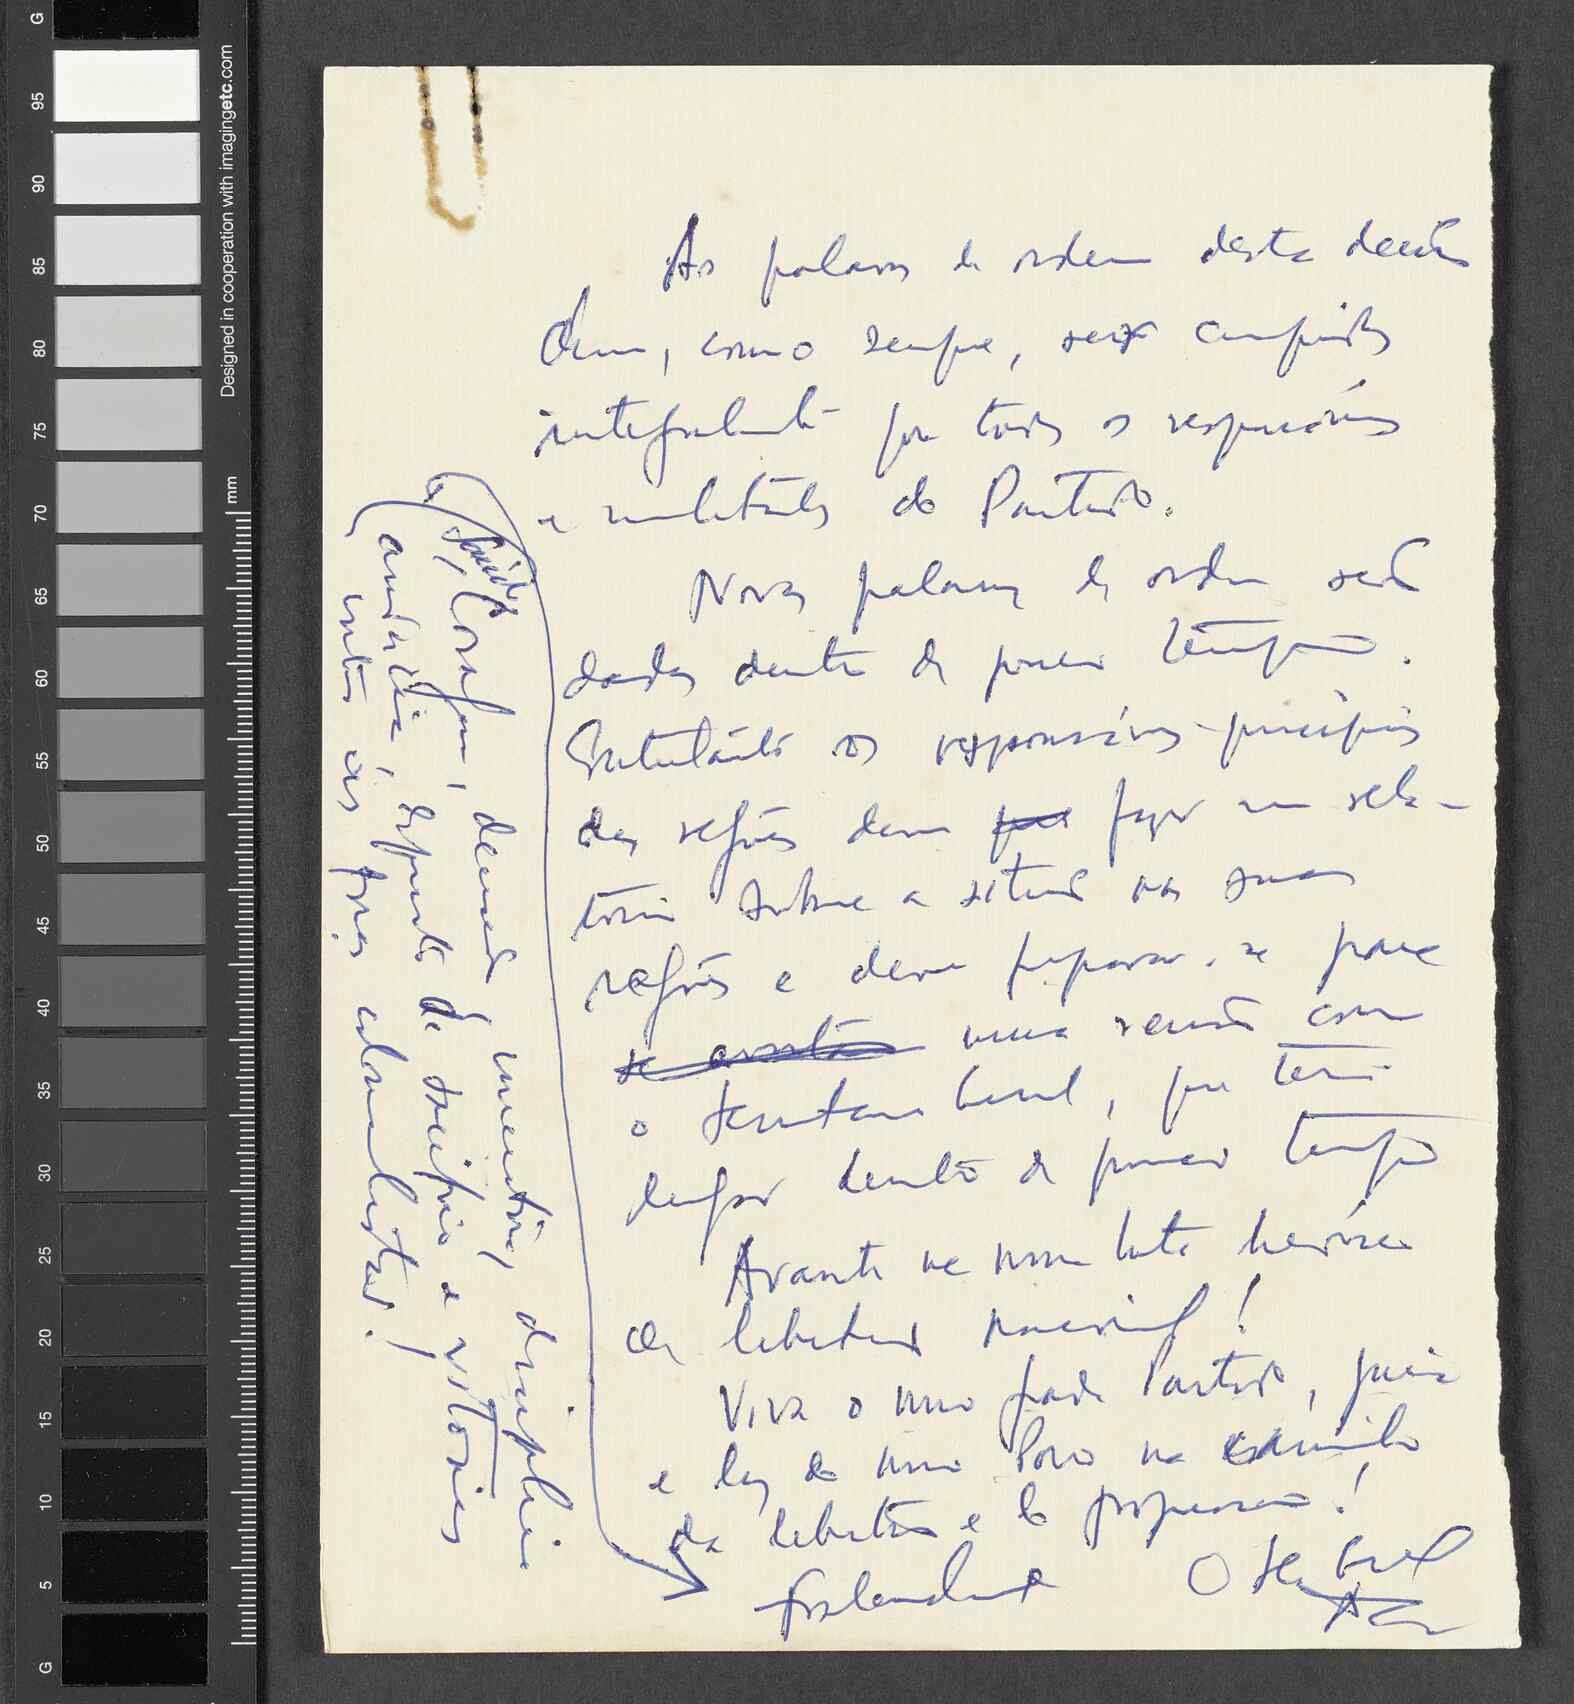 As palavras de ordem desta decisão
devem, como sempre, ser cumpridas
integralmente por todos os responsáveis
e militantes do Partido.
Novas palavras de ordem serão
dadas dentro de pouco tempo.
Entretanto os responsáveis principais
das regiões devem fazer um rela-
tório sobre a situação nas suas
regiões e devem preparar-se para
uma reunião com
o Secretário Geral, que terá
lugar dentro de pouco tempo
Avante na nossa luta heróica
de libertação nacional!
Viva o nosso grande Partido, guia
e luz do nosso Povo no caminho
da libertação e do progresso!
O Sec. Geral
Saúde, coragem, decisão, iniciativa, disciplina
audácia, espírito de sacrifício e vitórias
contra as forças colonialistas!
G
95
90
85
80
75
70
65
60
55
50
45
40
35
30
25
20
15
10
5
G
mm
Designed in cooperation with imagingetc.com